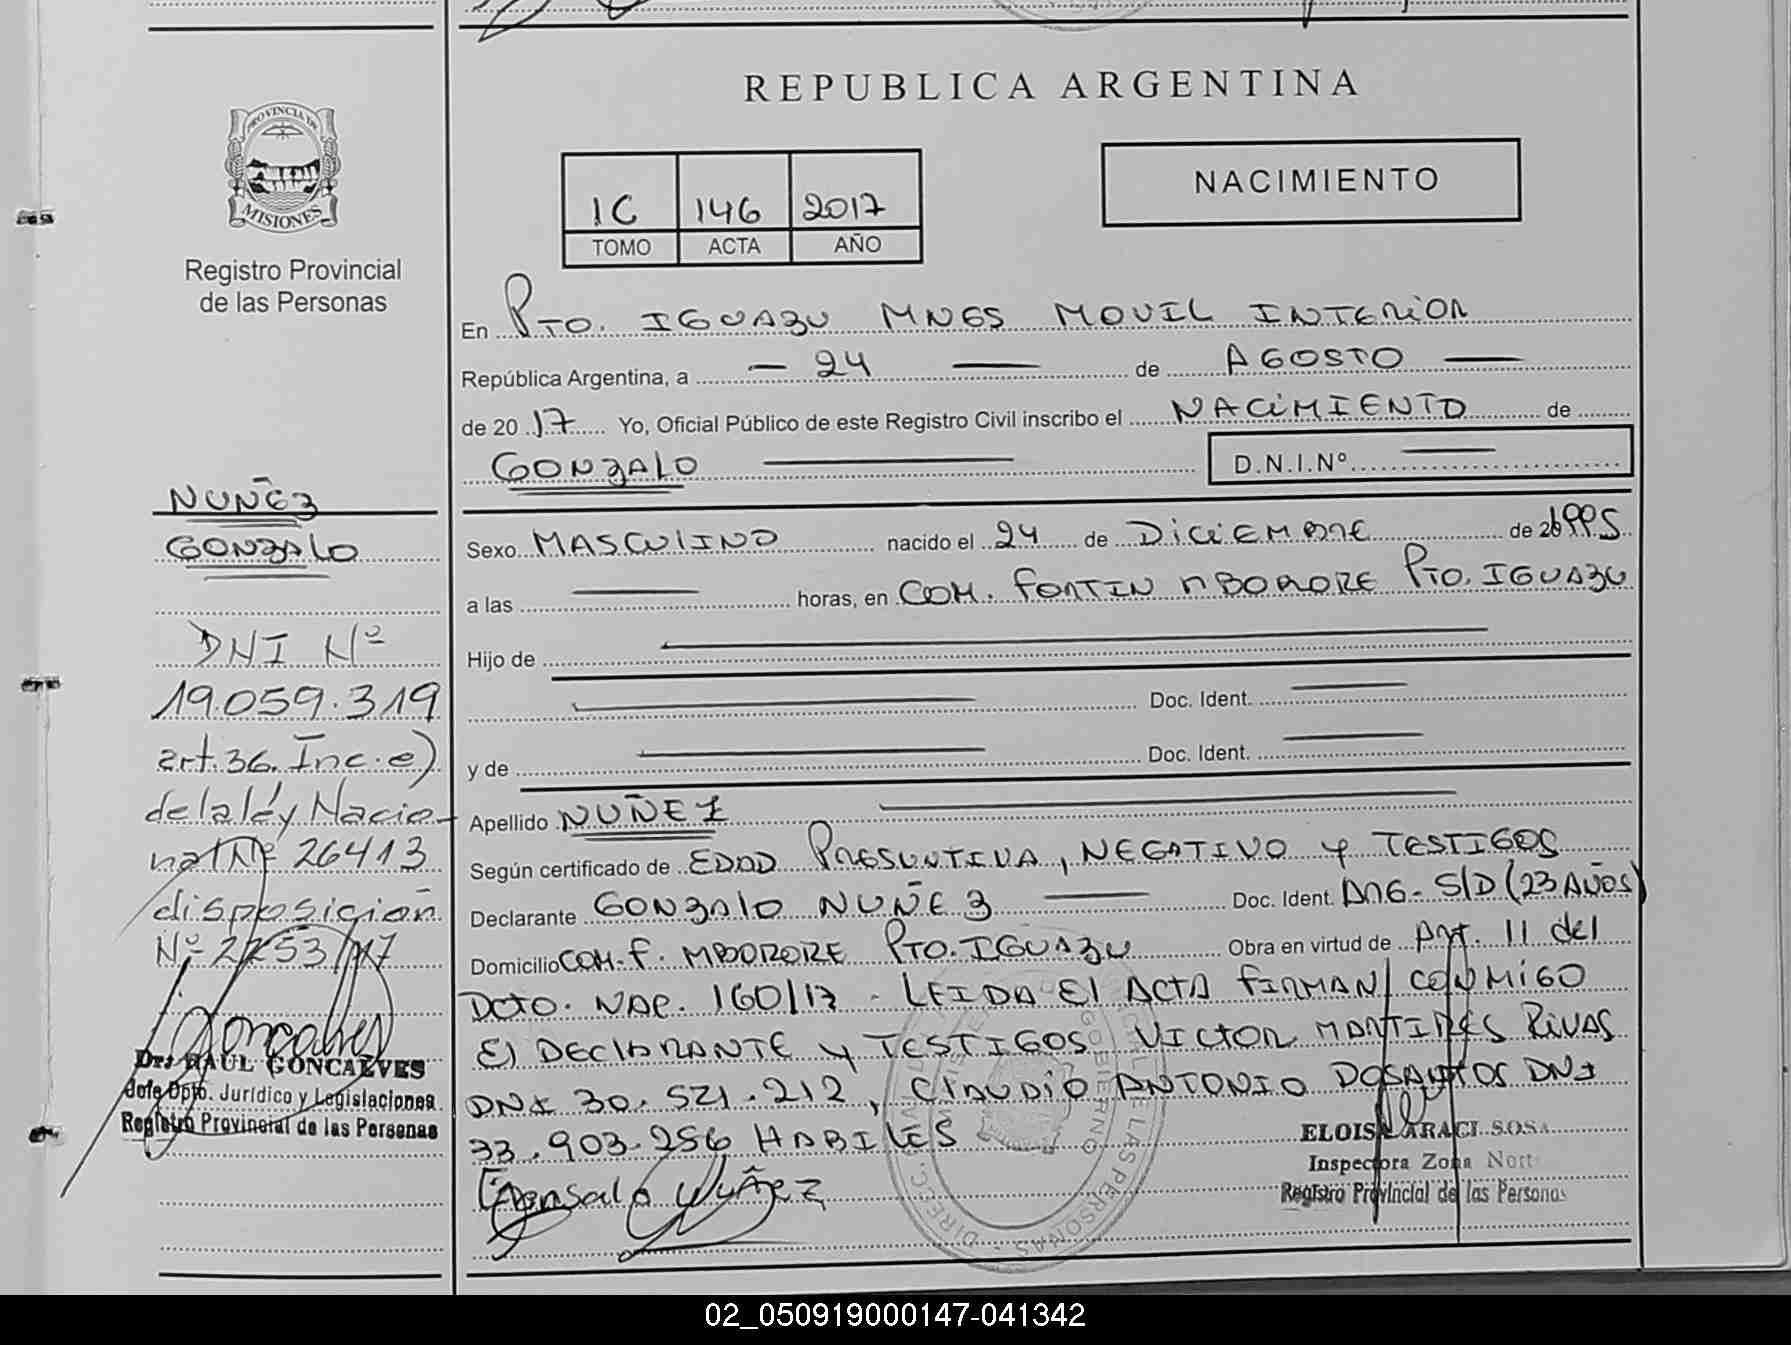 REPUBLICA ARGENTINA
PROVINCIA DE
MISIONES
Registro Provincial
de las Personas
1C 146 2017
TOMO ACTA AÑO
NACIMIENTO
En PTO. IGUAZU MNES MOVIL INTERIOR
República Argentina, a — 24 — de AGOSTO —
de 20 17 Yo, Oficial Público de este Registro Civil inscribo el NACIMIENTO de
GONZALO — D.N.I.Nº —
NUÑEZ
GONZALO
DNI Nº
19.059.319
art.36. Inc.e)
de la léy Nacio-
nal Nº 26413
disposición
Nº 2253/17
Dr. RAUL GONCALVES
Jefe Dpto. Jurídico y Legislaciones
Registro Provincial de las Personas
Sexo MASCULINO nacido el 24 de DICIEMBRE de 20 1995
a las — horas, en COM. FORTIN MBORORE PTO. IGUAZU
Hijo de —
— Doc. Ident. —
y de — Doc. Ident. —
Apellido NUÑEZ —
Según certificado de EDAD PRESUNTIVA, NEGATIVO y TESTIGOS
Declarante GONZALO NUÑEZ — Doc. Ident. ARG- S/D (23 AÑOS)
Domicilio COM. F. MBORORE PTO. IGUAZU Obra en virtud de ART. 11 del
DCTO. NAC. 160/17 - LEIDA El ACTA FIRMAN CONMIGO
El DEClARANTE y TESTIGOS VICTOR MARTINES RIVAS
DNI 30.521.212, ClAUDIO ANTONIO DOSANTOS DNI
33.903.256 HABILES
Gonsalo Nuñez
ELOISA ARACI SOSA
Inspectora Zona Nort
Registro Provincial de las Personas
02_050919000147-041342